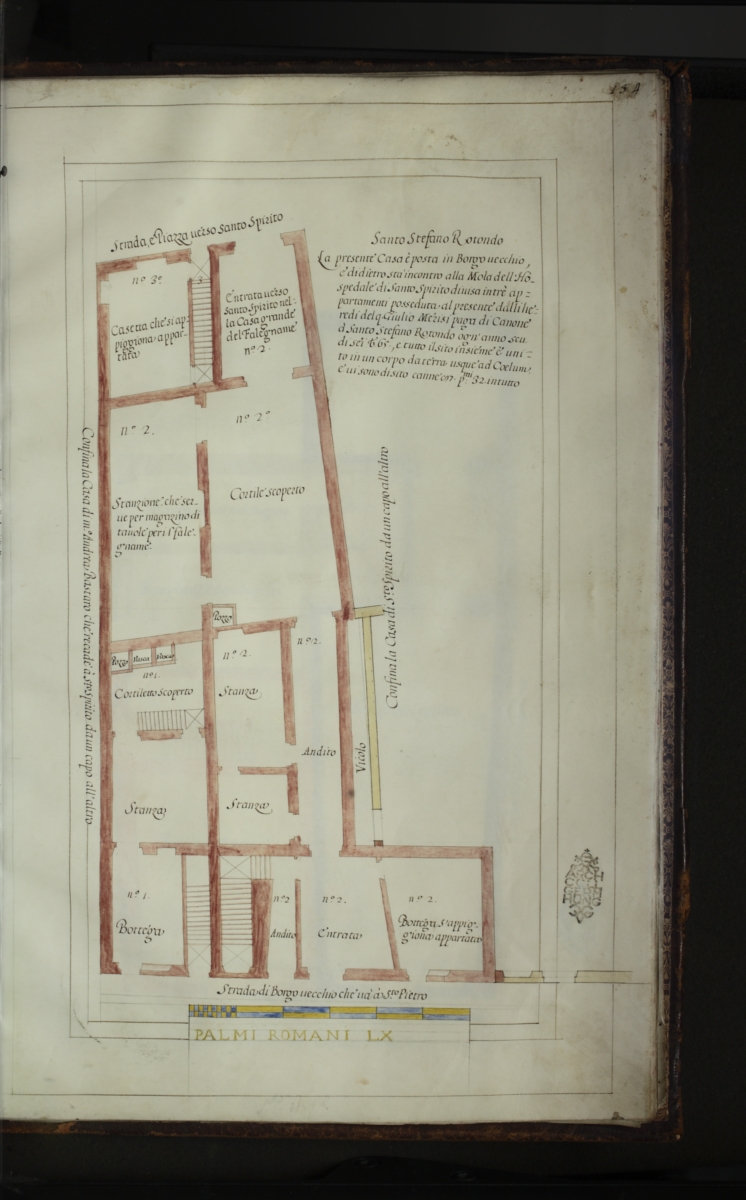 154
Strada, e Piazza uerso Santo Spirito
Santo Stefano Rotondo
La presente Casa è posta in Borgo uecchio,
e di dietro sta incontro alla Mola dell'Ho-
spedale di Santo Spirito diuisa in trè ap-
partamenti posseduta al presente dalli he-
redi del q. Giulio Merisi paga di Canone
à Santo Stefano Rotondo ogn'anno scu-
di sei e tutto il sito insieme è uni-
to in un corpo da terra usque ad Coelum,
e ui sono di sito canne 32 in tutto
n.° 3°
Casetta che si ap-
piggiona appar-
tata
Entrata uerso
Santo Spirito nel-
la Casa grande
del Falegname
n.° 2.
n.° 2.
n.° 2°
Stanzione che ser-
ue per magazino di
tauole per il fale-
gname
Cortile scoperto
Confina la Casa di m. Andrea Bastaro che recade à S.to Spirito da un capo all'altro
Confina la Casa di S.to Spirito da un capo all'altro
Pozzo
Pozzo
Vasca
Vasca
n.° 1.
Cortiletto scoperto
n.° 2
Stanza
n.° 2.
Andito
Vicolo
Stanza
Stanza
n.° 1.
Bottega
n.° 2
Andito
n.° 2.
Entrata
n.° 2.
Bottega s'appig-
giona appartata
Strada di Borgo uecchio che uà à S.to Pietro
PALMI ROMANI LX